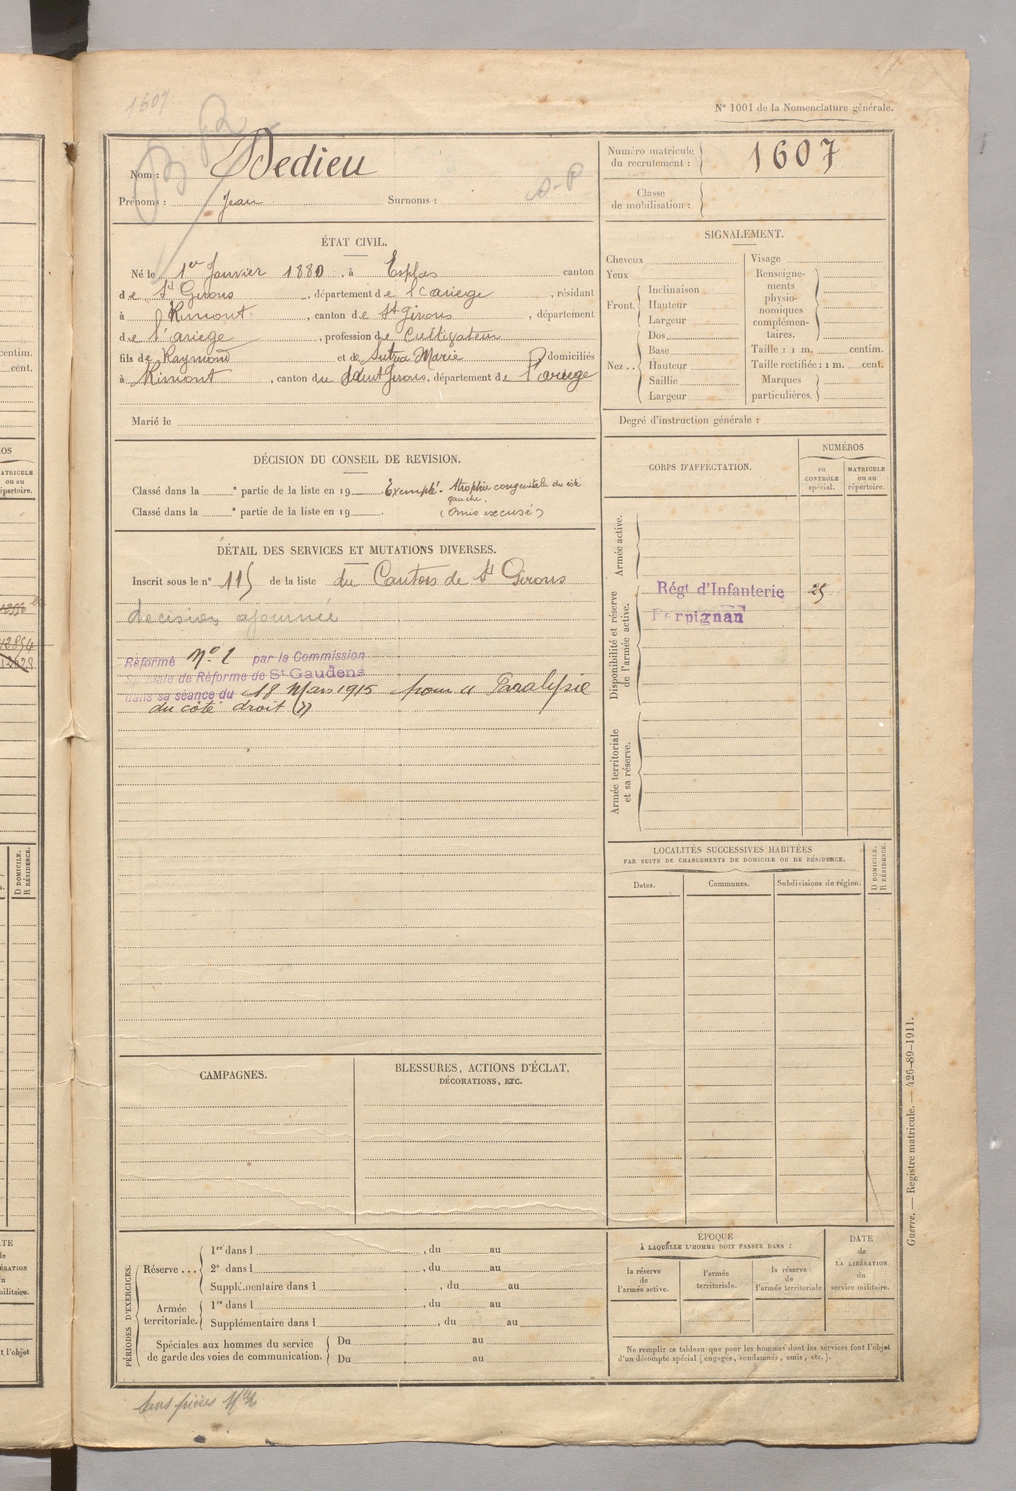 1607
N° 1001 de la Nomenclature générale.
Nom : Dedieu
Prénoms : Jean Surnoms :
Numéro matricule du recrutement : 1607
Classe de mobilisation :
ÉTAT CIVIL.
Né le 1er Janvier 1880, à Esplas canton
de St Girons, département de l'Ariège, résidant
à Rimont, canton de St Girons, département
de l'ariège, profession de Cultivateur
fils de Raymond et de Sutra Marie domiciliés
à Rimont, canton de Saint Girons, département de l'ariège
Marié le
SIGNALEMENT.
Cheveux
Yeux
Front. Inclinaison
Hauteur
Largeur
Nez .. Dos
Base
Hauteur
Saillie
Largeur
Visage
Renseignements physionomiques complémentaires.
Taille : 1 m. centim.
Taille rectifiée : 1 m. cent.
Marques particulières.
Degré d'instruction générale :
DÉCISION DU CONSEIL DE REVISION.
Classé dans la e partie de la liste en 19 Exempté. Atrophie congenitale du côté gauche.
Classé dans la e partie de la liste en 19 . (Omis excusé)
DÉTAIL DES SERVICES ET MUTATIONS DIVERSES.
Inscrit sous le n° 115 de la liste du Canton de St Girons
décision ajournée
Réformé N° 2 par la Commission
Spéciale de Réforme de St Gaudens
dans sa séance du 18 Mars 1915 pour Paralysie
du côté droit
CORPS D'AFFECTATION.
NUMÉROS
au CONTRÔLE spécial.
MATRICULE ou au répertoire.
Armée active.
Disponibilité et réserve de l'armée active.
Régt d'Infanterie 25
Perpignan
Armée territoriale et sa réserve.
LOCALITÉS SUCCESSIVES HABITÉES
PAR SUITE DE CHANGEMENTS DE DOMICILE OU DE RÉSIDENCE.
Dates. Communes. Subdivisions de région.
D DOMICILE.
R RÉSIDENCE.
CAMPAGNES.
BLESSURES, ACTIONS D'ÉCLAT,
DÉCORATIONS, ETC.
PÉRIODES D'EXERCICES.
Réserve ... 1re dans l , du au
2e dans l , du au
Supplémentaire dans l , du au
Armée territoriale. 1re dans l , du au
Supplémentaire dans l , du au
Spéciales aux hommes du service de garde des voies de communication. Du au
Du au
ÉPOQUE
À LAQUELLE L'HOMME DOIT PASSER DANS :
la réserve de l'armée active.
l'armée territoriale.
la réserve de l'armée territoriale
DATE de LA LIBÉRATION du service militaire.
Ne remplir ce tableau que pour les hommes dont les services font l'objet
d'un décompte spécial (engagés, condamnés, omis, etc.).
Guerre. — Registre matricule. — 426-89-1911.